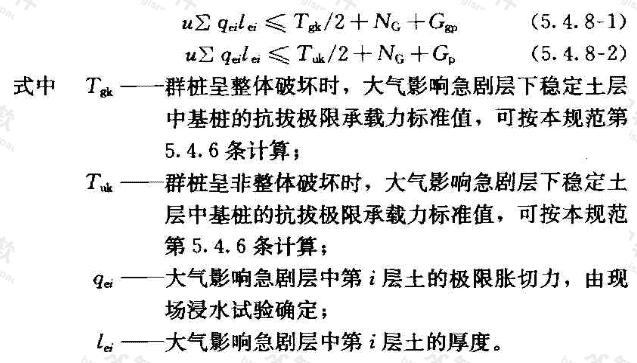 u∑ qₑᵢlₑᵢ ≤ T_gk/2 + N_G + G_gp (5.4.8-1)
u∑ qₑᵢlₑᵢ ≤ T_uk/2 + N_G + G_p (5.4.8-2)
式中 T_gk ——群桩呈整体破坏时，大气影响急剧层下稳定土层
中基桩的抗拔极限承载力标准值，可按本规范第
5.4.6 条计算；
T_uk ——群桩呈非整体破坏时，大气影响急剧层下稳定土
层中基桩的抗拔极限承载力标准值，可按本规范
第 5.4.6 条计算；
qₑᵢ ——大气影响急剧层中第 i 层土的极限胀切力，由现
场浸水试验确定；
lₑᵢ ——大气影响急剧层中第 i 层土的厚度。